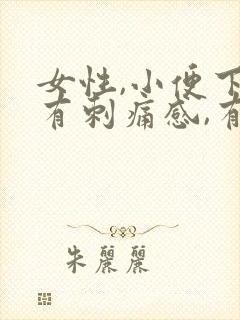 女性,小便下
有刺痛感,有
朱麗麗